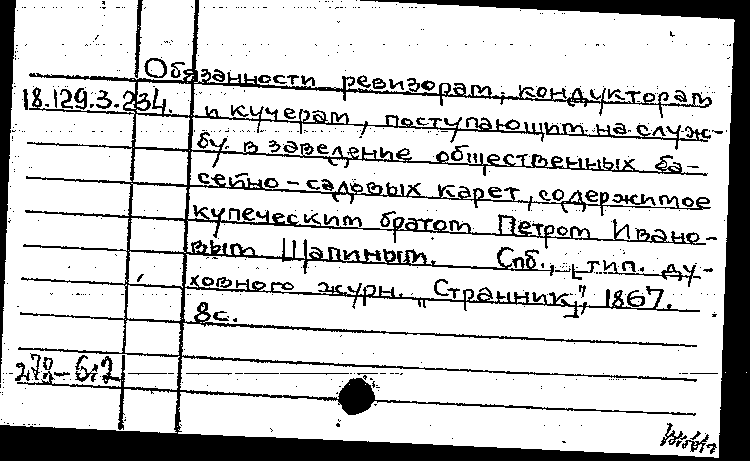 Обязанности ревизорам, кондукторам
18.129.3.234. и кучерам, поступающим на служ-
бу в заведение общественных ба-
сейно-садовых карет, содержимое
купеческим братом Петром Ивано-
вым Щапиным. Спб., [тип. ду-
ховного журн. "Странник]", 1867.
8с.